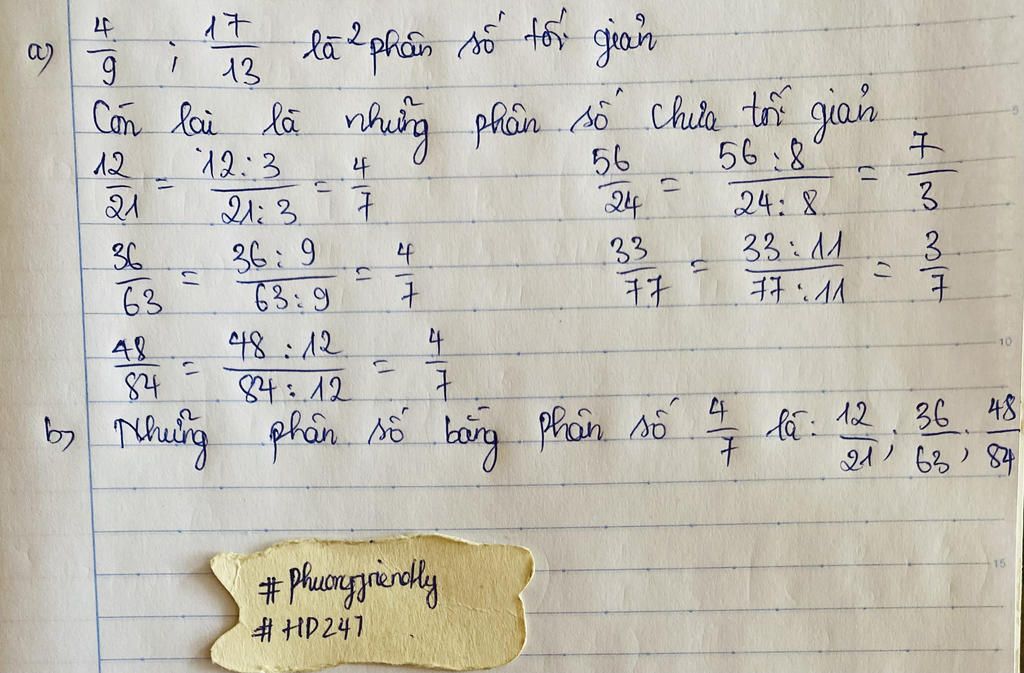 a) 4/9 ; 17/13 là 2 phân số tối giản
Còn lại là những phân số chưa tối giản
12/21 = 12:3/21:3 = 4/7 56/24 = 56:8/24:8 = 7/3
36/63 = 36:9/63:9 = 4/7 33/77 = 33:11/77:11 = 3/7
48/84 = 48:12/84:12 = 4/7
b) Những phân số bằng phân số 4/7 là: 12/21; 36/63; 48/84
#phuongfriendly
#HD247
5
10
15